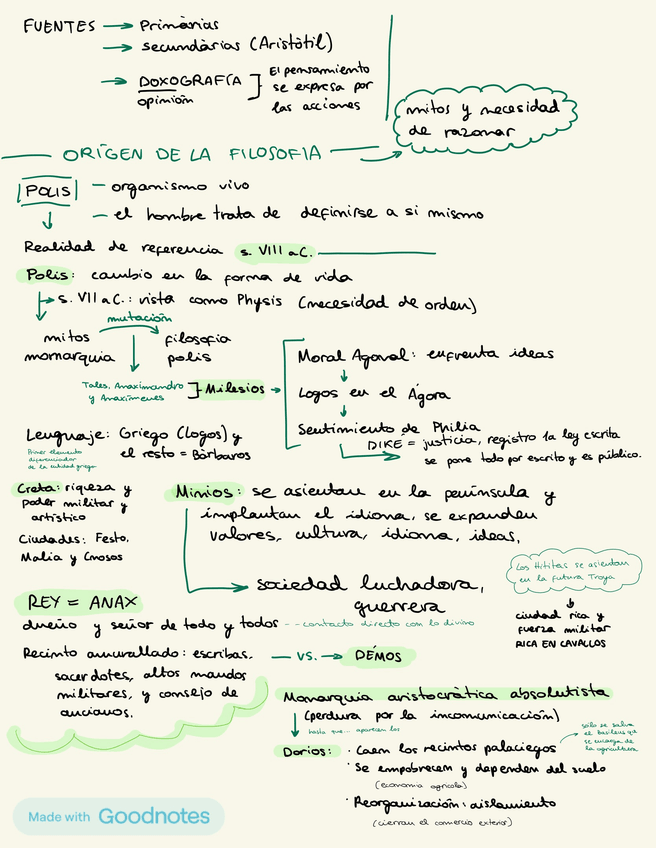 FUENTES → Primàrias
→ secundàrias (Aristòtil)
→ DOXOGRAFÍA
opinión
El pensamiento
se expresa por
las acciones
mitos y necesidad
de razonar
ORÍGEN DE LA FILOSOFIA
POLIS — organismo vivo
— el hombre trata de definirse a si mismo
Realidad de referencia s. VIII a.C.
Polis: cambio en la forma de vida
s. VII a.C.: vista como Physis (necesidad de orden)
mutación
mitos filosofia
monarquia polis
Tales, Anaximandro
y Anaxímenes
Milesios →
Moral Agonal: enfrenta ideas
Logos en el Ágora
Sentimiento de Philia
DIKE = justicia, registro la ley escrita
se pone todo por escrito y es público.
Lenguaje: Griego (Logos) y
el resto = Bárbaros
Primer elemento
diferenciador
de la entidad griega
Creta: riqueza y
poder militar y
artístico
Ciudades: Festo,
Malia y Cnosos
Minios: se asientan en la península y
implantan el idioma, se expanden
valores, cultura, idioma, ideas,
sociedad luchadora,
guerrera
Los Hititas se asientan
en la futura Troya
ciudad rica y
fuerza militar
RICA EN CAVALLOS
REY = ANAX
dueño y señor de todo y todos -- contacto directo con lo divino
Recinto amurallado: escribas,
sacerdotes, altos mandos
militares, y consejo de
ancianos.
— vs. → DÉMOS
Monarquia aristocràtica absolutista
(perdura por la incomunicación)
hasta que... aparecen los
Dorios: · Caen los recintos palaciegos
sólo se salva
el basileus que
se encarga de
la agricultura
· Se empobrecen y dependen del suelo
(economia agrícola)
· Reorganización: aislamiento
(cierran el comercio exterior)
Made with Goodnotes